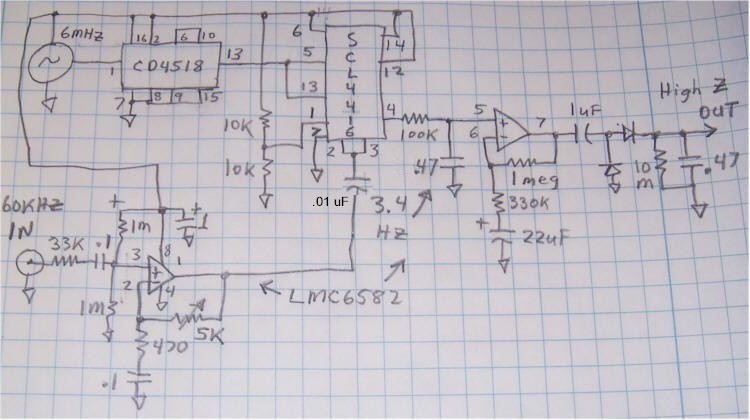 6mHz
1
16
2
6
10
CD4518
13
7
8
9
15
6
5
13
1
7
2
3
6
SCL4416
14
12
4
10K
10K
100K
.47
3.4
Hz
5
6
7
1meg
330K
+
22uF
1uF
High Z
OUT
10
m
.47
.01 uF
60KHz
IN
33K
.1
+
1m
+
1
1m
3
2
8
1
4
5K
470
.1
LMC6582